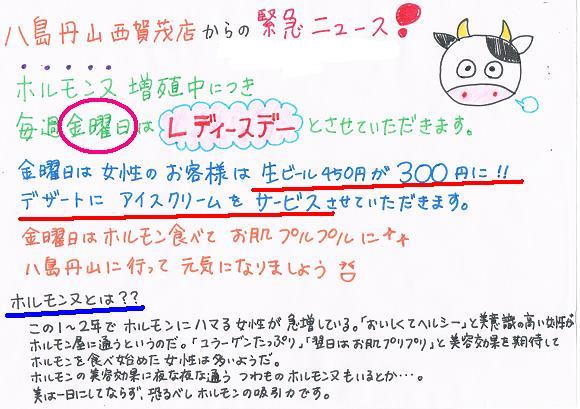 八島丹山西賀茂店からの緊急ニュース！
ホルモンヌ増殖中につき
毎週金曜日はLディースデーとさせていただきます。
金曜日は女性のお客様は生ビール450円が300円に!!
デザートにアイスクリームをサービスさせていただきます。
金曜日はホルモン食べてお肌プルプルに
八島丹山に行って元気になりましょう
ホルモンヌとは??
この1〜2年でホルモンにハマる女性が急増している。「おいしくてヘルシー」と美意識の高い女性が
ホルモン屋に通うというのだ。「コラーゲンたっぷり」「翌日はお肌プリプリ」と美容効果を期待して
ホルモンを食べ始めた女性は多いようだ。
ホルモンの美容効果に夜な夜な通うつわものホルモンヌもいるとか…。
美は一日にしてならず、恐るべしホルモンの吸引力です。